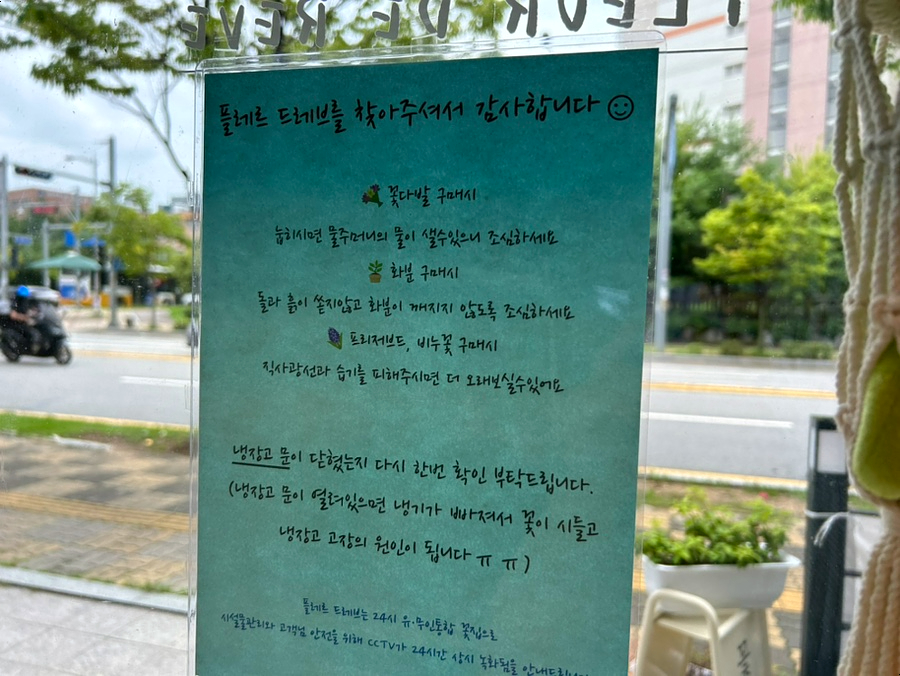 FLEUR DE REVE
플레르 드레브를 찾아주셔서 감사합니다
꽃다발 구매시
눕히시면 물주머니의 물이 샐수있으니 조심하세요
화분 구매시
돌과 흙이 쏟지않고 화분이 깨지지 않도록 조심하세요
프리저브드, 비누꽃 구매시
직사광선과 습기를 피해주시면 더 오래보실수있어요
냉장고 문이 닫혔는지 다시 한번 확인 부탁드립니다.
(냉장고 문이 열려있으면 냉기가 빠져서 꽃이 시들고
냉장고 고장의 원인이 됩니다 ㅠ ㅠ)
플레르 드레브는 24시 유·무인통합 꽃집으로
시설물관리와 고객님 안전을 위해 CCTV가 24시간 상시 녹화됨을 안내드립니다